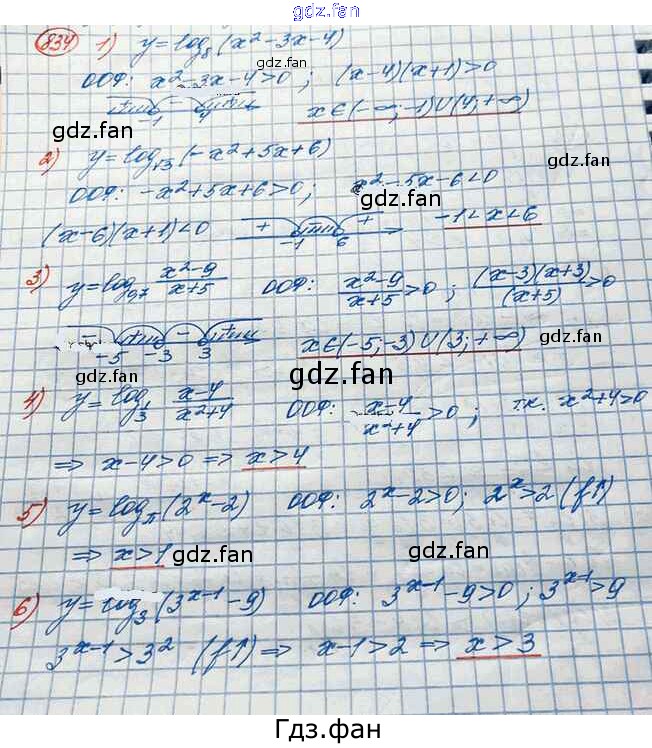 gdz.fan
834 1) y=log₈(x²-3x-4)
gdz.fan
ООФ: x²-3x-4>0 ; (x-4)(x+1)>0
+ - +
-1 4 x∈(-∞;-1)∪(4;+∞)
gdz.fan gdz.fan
2) y=log₁₃(-x²+5x+6)
gdz.fan
ООФ: -x²+5x+6>0; x²-5x-6<0
gdz.fan
(x-6)(x+1)<0 + - + -1<x<6
-1 6
3) y=log (x²-9)/(x+5) ООФ: (x²-9)/(x+5)>0 ; ((x-3)(x+3))/(x+5)>0
gdz.fan gdz.fan
- + - +
-5 -3 3 x∈(-5;-3)∪(3;+∞)
gdz.fan
4) y=log_⅓ (x-4)/(x²+4) ООФ: (x-4)/(x²+4)>0 ; т.к. x²+4>0
gdz.fan
⇒ x-4>0 ⇒ x>4
gdz.fan
5) y=log_π(2ˣ-2) ООФ: 2ˣ-2>0; 2ˣ>2 (f↑)
⇒ x>1
gdz.fan gdz.fan
6) y=log₃(3ˣ⁻¹-9) ООФ: 3ˣ⁻¹-9>0 ; 3ˣ⁻¹>9
gdz.fan
3ˣ⁻¹>3² (f↑) ⇒ x-1>2 ⇒ x>3
gdz.fan
Гдз.фан